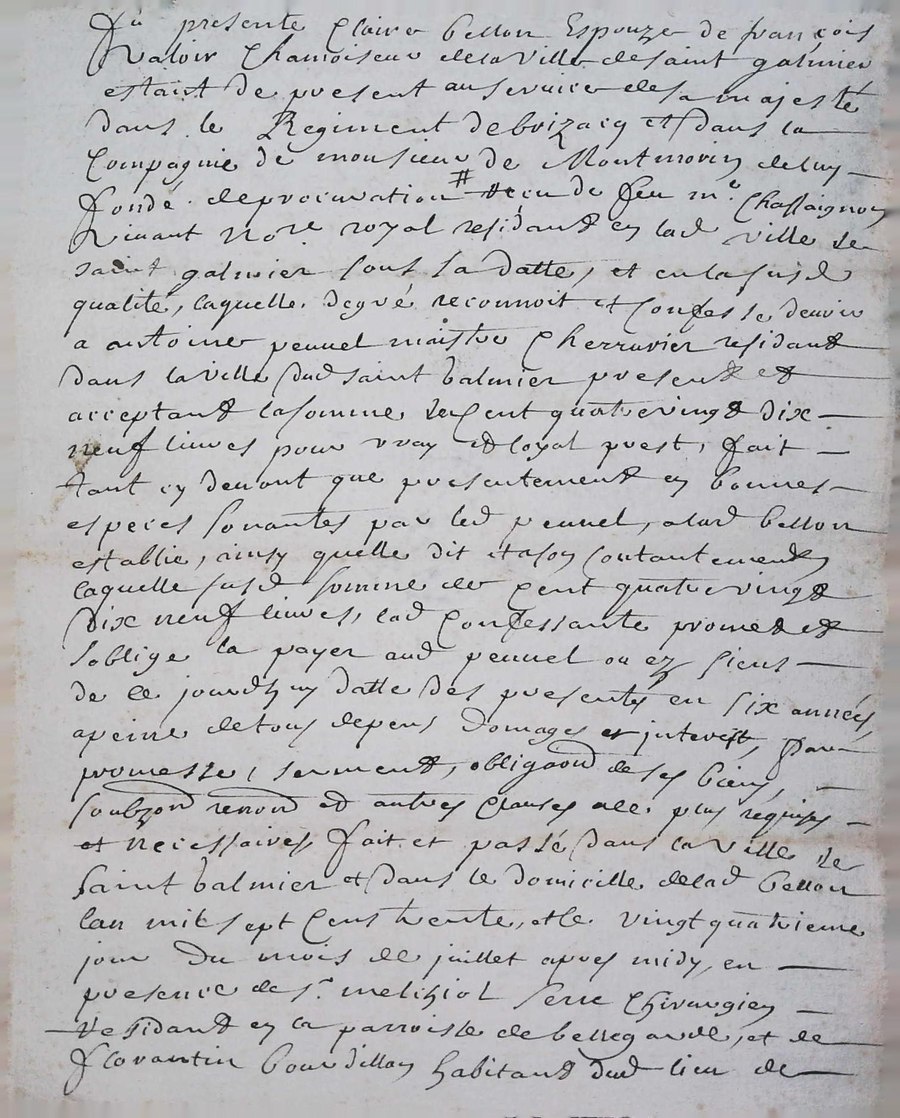 Fu presente Claire bellon Espouze de françois
Valoir Chamoiseur dela ville de saint galmier
estant de present au service de sa majesté
dans le Regiment de brizacq et dans la
Compagnie de monsieur de Montmorin de luy
fondé de procuration # receu de feu me Chassaignon
vivant nore royal residant en lad ville de
saint galmier sous sa datte, et en lasusd
qualité, laquelle degré reconnoit et Confesse devoir
a antoine pennel maistre residant
dans la ville dud saint balmier present et
acceptant la somme de Cent quatrevingt dix
neuf livres pour vray et loyal prest, fait
tant cy devant que presentement en bonnes
especes sonantes par led pennel, a lad bellon
establie, ainsy quelle dit et a son contantement
laquelle susd somme de Cent quatrevingt
dix neuf livres, lad Confessante promet et
soblige la payer aud pennel ou ez siens
de ce jourdhuy datte des presentes en six années,
a peine de tous depens domages et interest, par
promesse, serment, obligaon de ses biens,
soubzon renon et autres clauses alle plus requises
et necessaires fait et passé dans la ville de
saint balmier et dans le domicille de lad bellon
lan mil sept Cens trente, et le vingt quatrieme
jour du mois de juillet apres midy, en
presence de sr melchiol serre Chirurgien
residant en la parroisse de bellegarde, et de
florantin bourdillon habitant dud lieu de